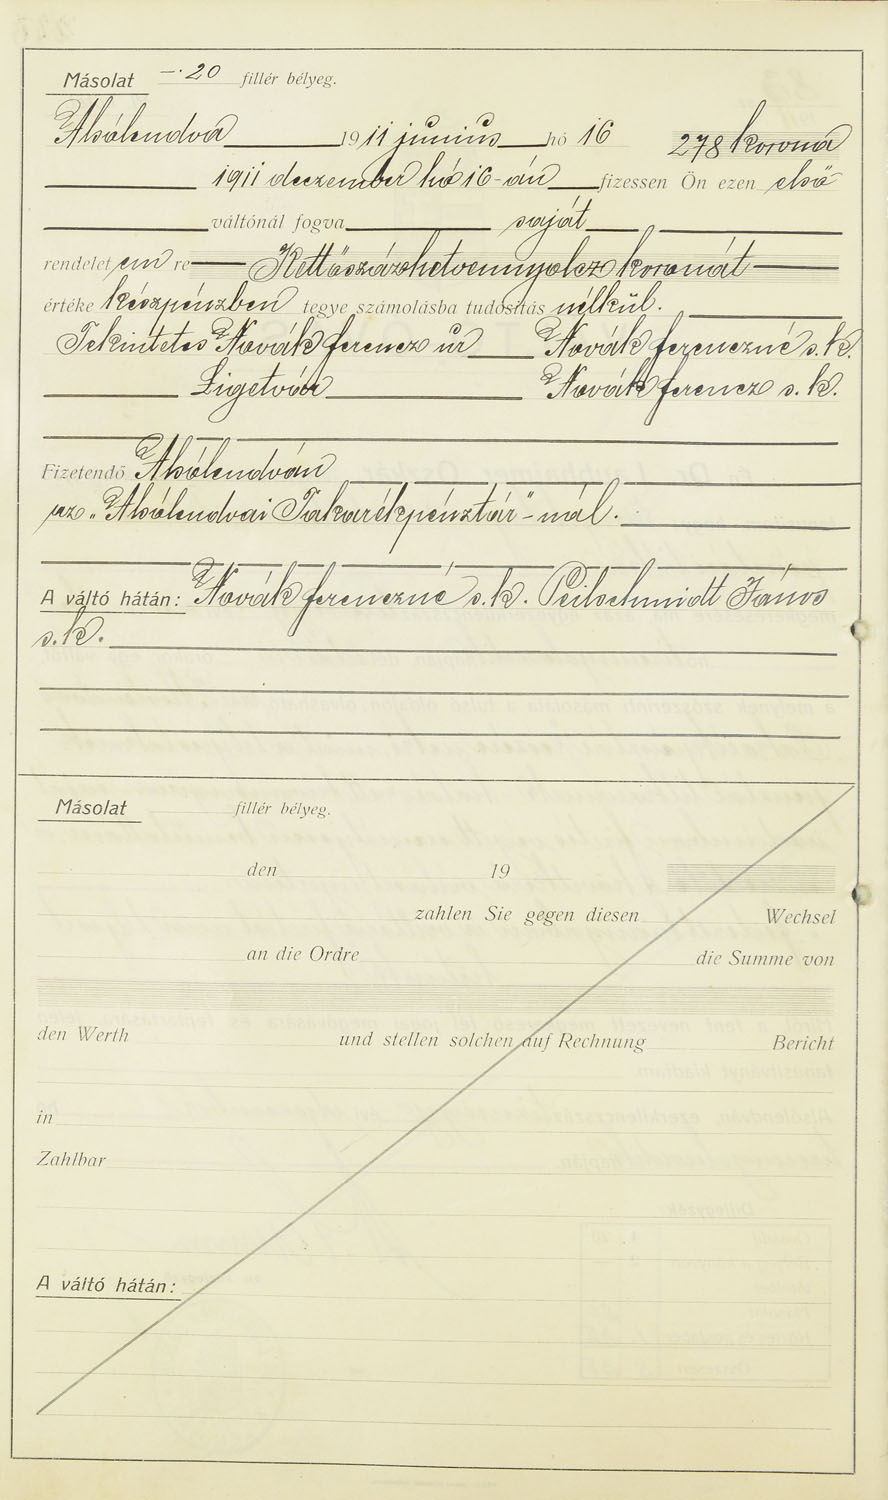 Másolat —·20 fillér bélyeg.
Alsólendva 1911 június hó 16 278 korona
1911 deczember hó 16-án fizessen Ön ezen első
váltónál fogva saját
rendelet em re Kettőszázhetvennyolcz koronát
értéke készpénzben tegye számolásba tudósítás nélkül.
Tekintetes Novák Ferencz úr Novák Ferenczné s. k.
Ligetvár Novák Ferencz s. k.
Fizetendő Alsólendván
az „Alsólendvai Takarékpénztár"-nál.
A váltó hátán: Novák Ferenczné s. k. Peilschmidt János
s. k.
Másolat fillér bélyeg.
den 19
zahlen Sie gegen diesen Wechsel
an die Ordre die Summe von
den Werth und stellen solchen auf Rechnung Bericht
in
Zahlbar
A váltó hátán: